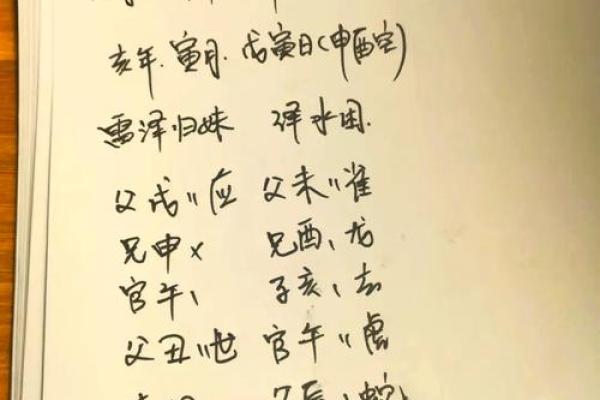 亥年.寅月.戊寅日(申酉空)
雷泽归妹 泽水困.
父戌〃应 父未〃雀
兄申× 兄酉、龙
官午、 子亥、玄
父丑〃世 官午〃虎
辰、蛇